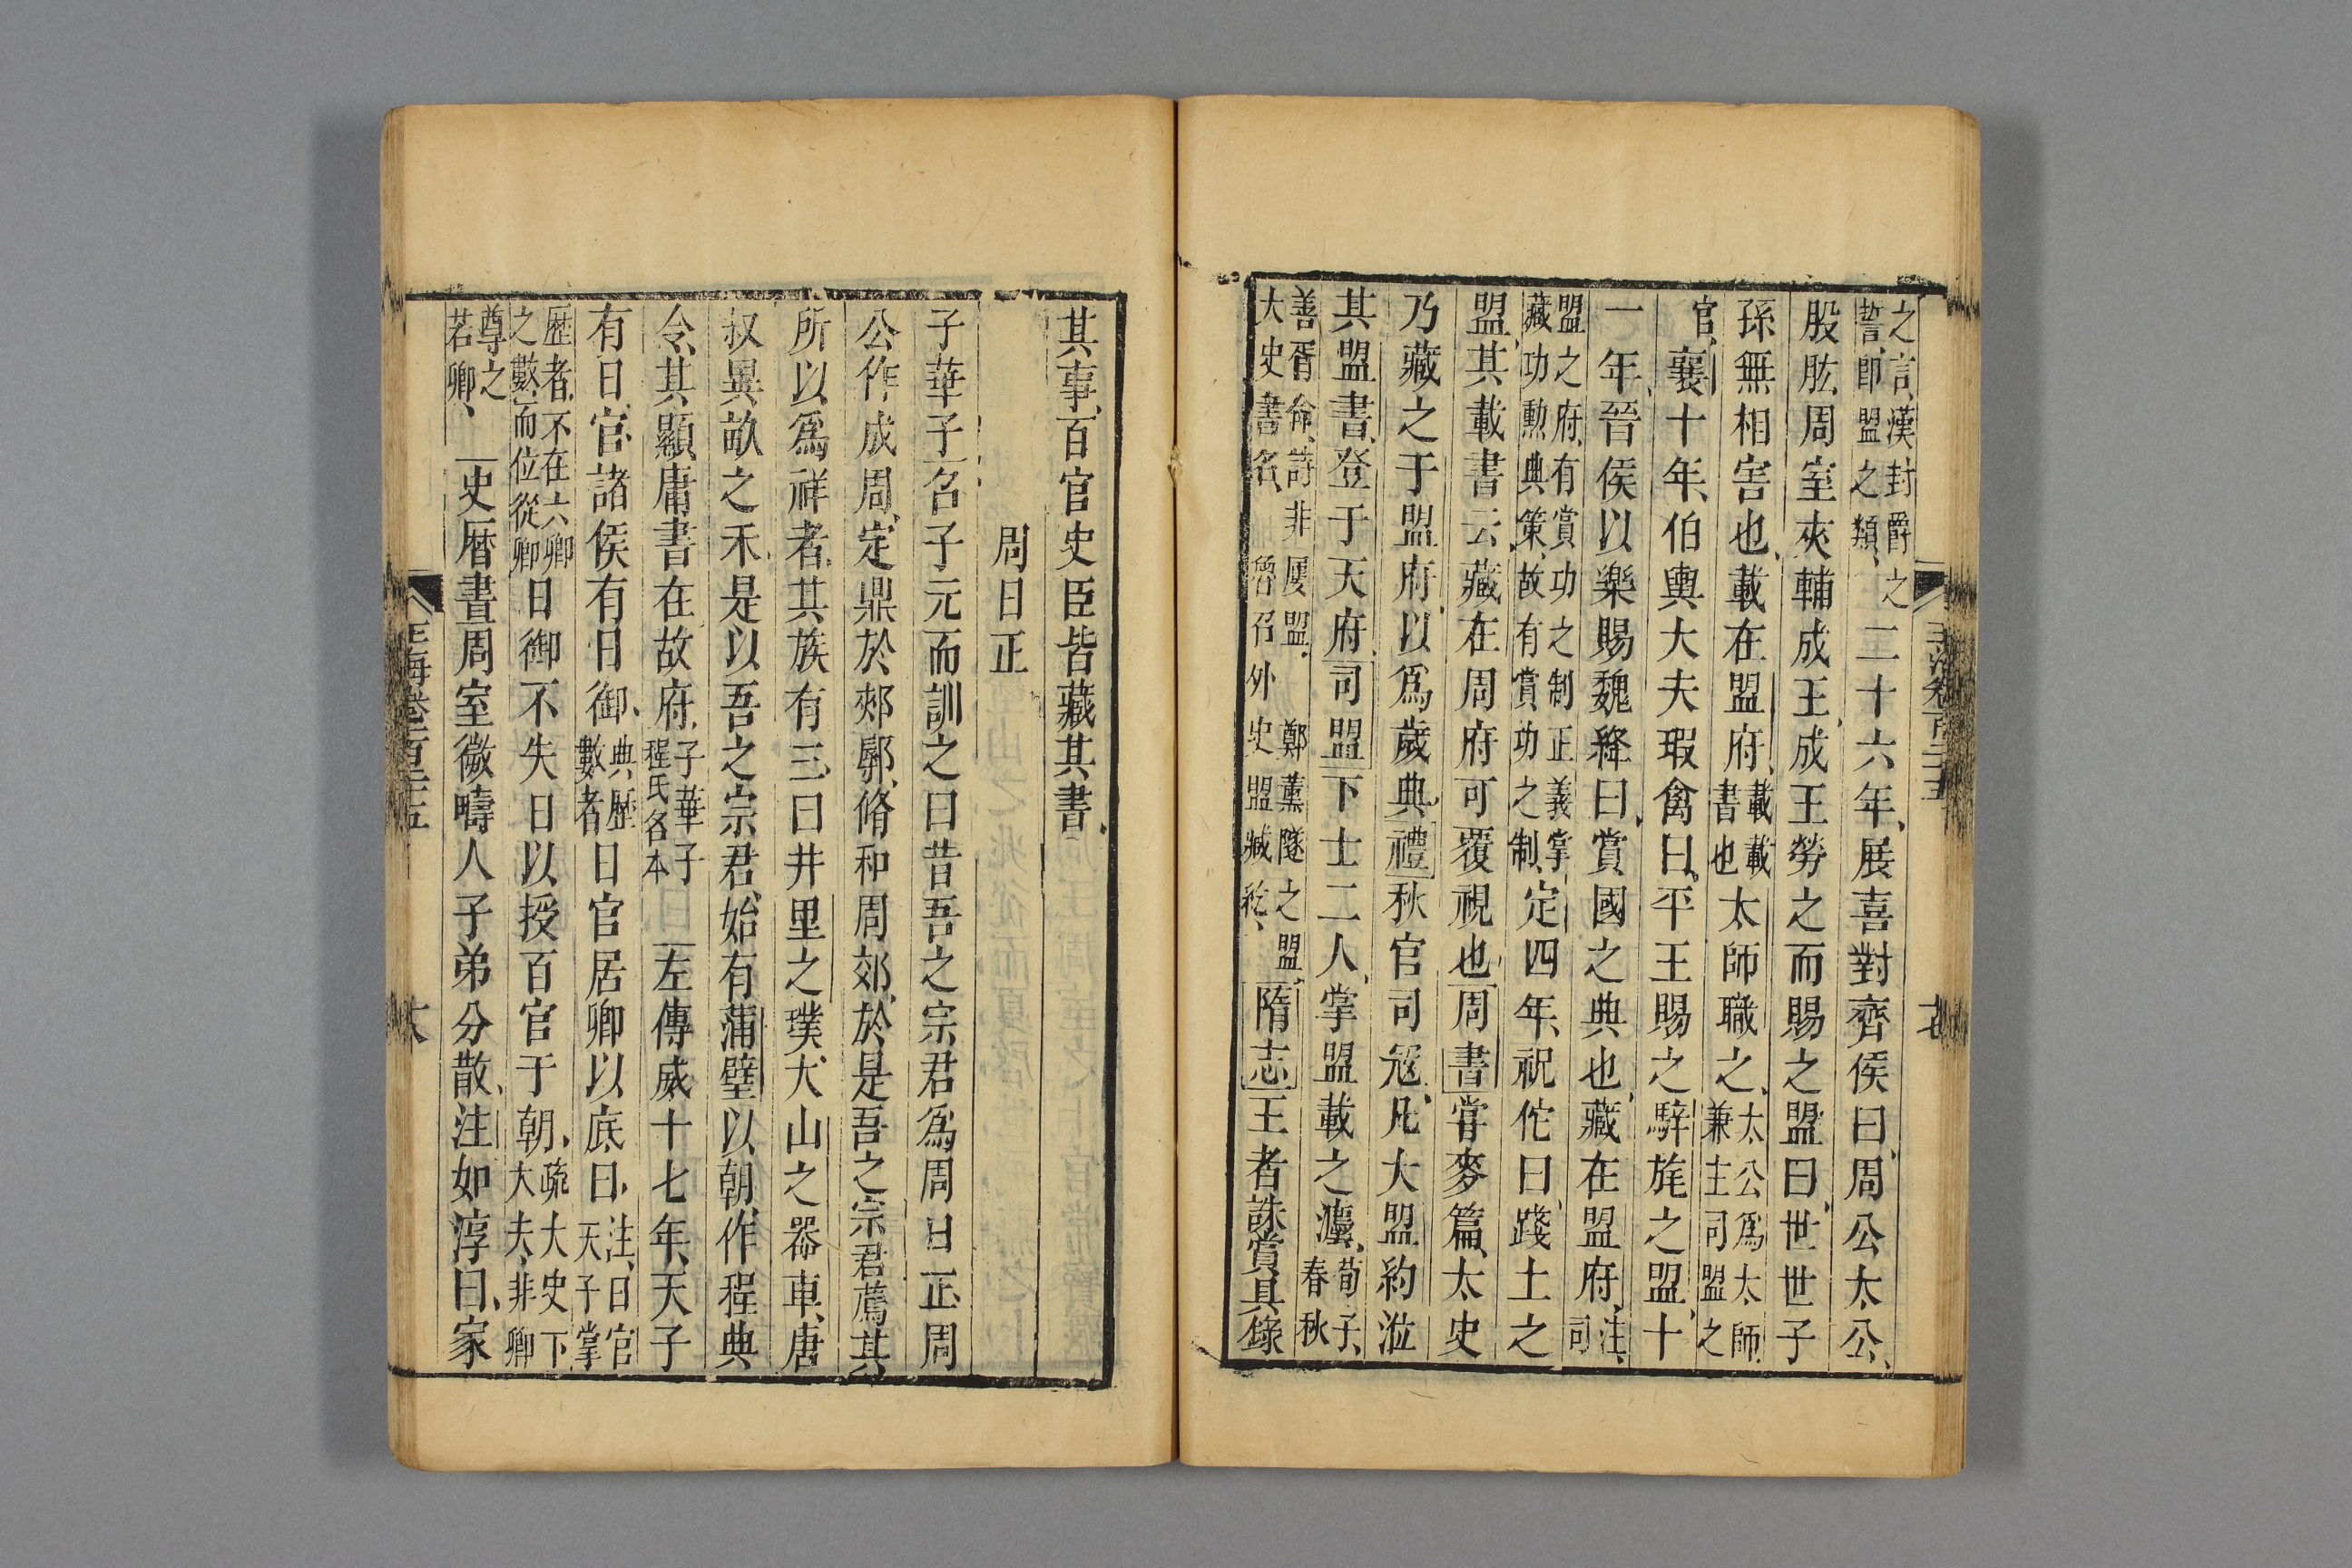 之言漢封爵之
誓卽盟之類二十六年展喜對齊侯曰周公太公
股肱周室夾輔成王成王勞之而賜之盟曰世世子
孫無相害也載在盟府載載書也太師職之太公爲太師兼主司盟之
官襄十年伯輿大夫瑕禽曰平王賜之騂旄之盟十
一年晉侯以樂賜魏絳曰賞國之典也藏在盟府注司
盟之府有賞功之制正義掌藏功勲典策故有賞功之制定四年祝佗曰踐土之
盟其載書云藏在周府可覆視也周書嘗麥篇太史
乃藏之于盟府以爲歲典禮秋官司寇凡大盟約涖
其盟書登于天府司盟下士二人掌盟載之灋荀子春秋
善胥命詩非屢盟鄭薰隧之盟大史書名魯召外史盟臧紇隋志王者誅賞具錄
其事百官史臣皆藏其書
周日正
子華子召子元而訓之曰昔吾之宗君爲周日正周
公作成周定鼎於郟鄏脩和周郊於是吾之宗君薦其
所以爲祥者其族有三曰井里之璞大山之器車唐
叔異畝之禾是以吾之宗君始有蒲璧以朝作程典
令其顯庸書在故府子華子程氏名本左傳威十七年天子
有日官諸侯有日御典歷數者日官居卿以底日注日官天子掌
歷者不在六卿之數而位從卿日御不失日以授百官于朝疏大史下大夫非卿
尊之若卿史曆書周室微疇人子弟分散注如淳曰家
玉海卷一百二十五